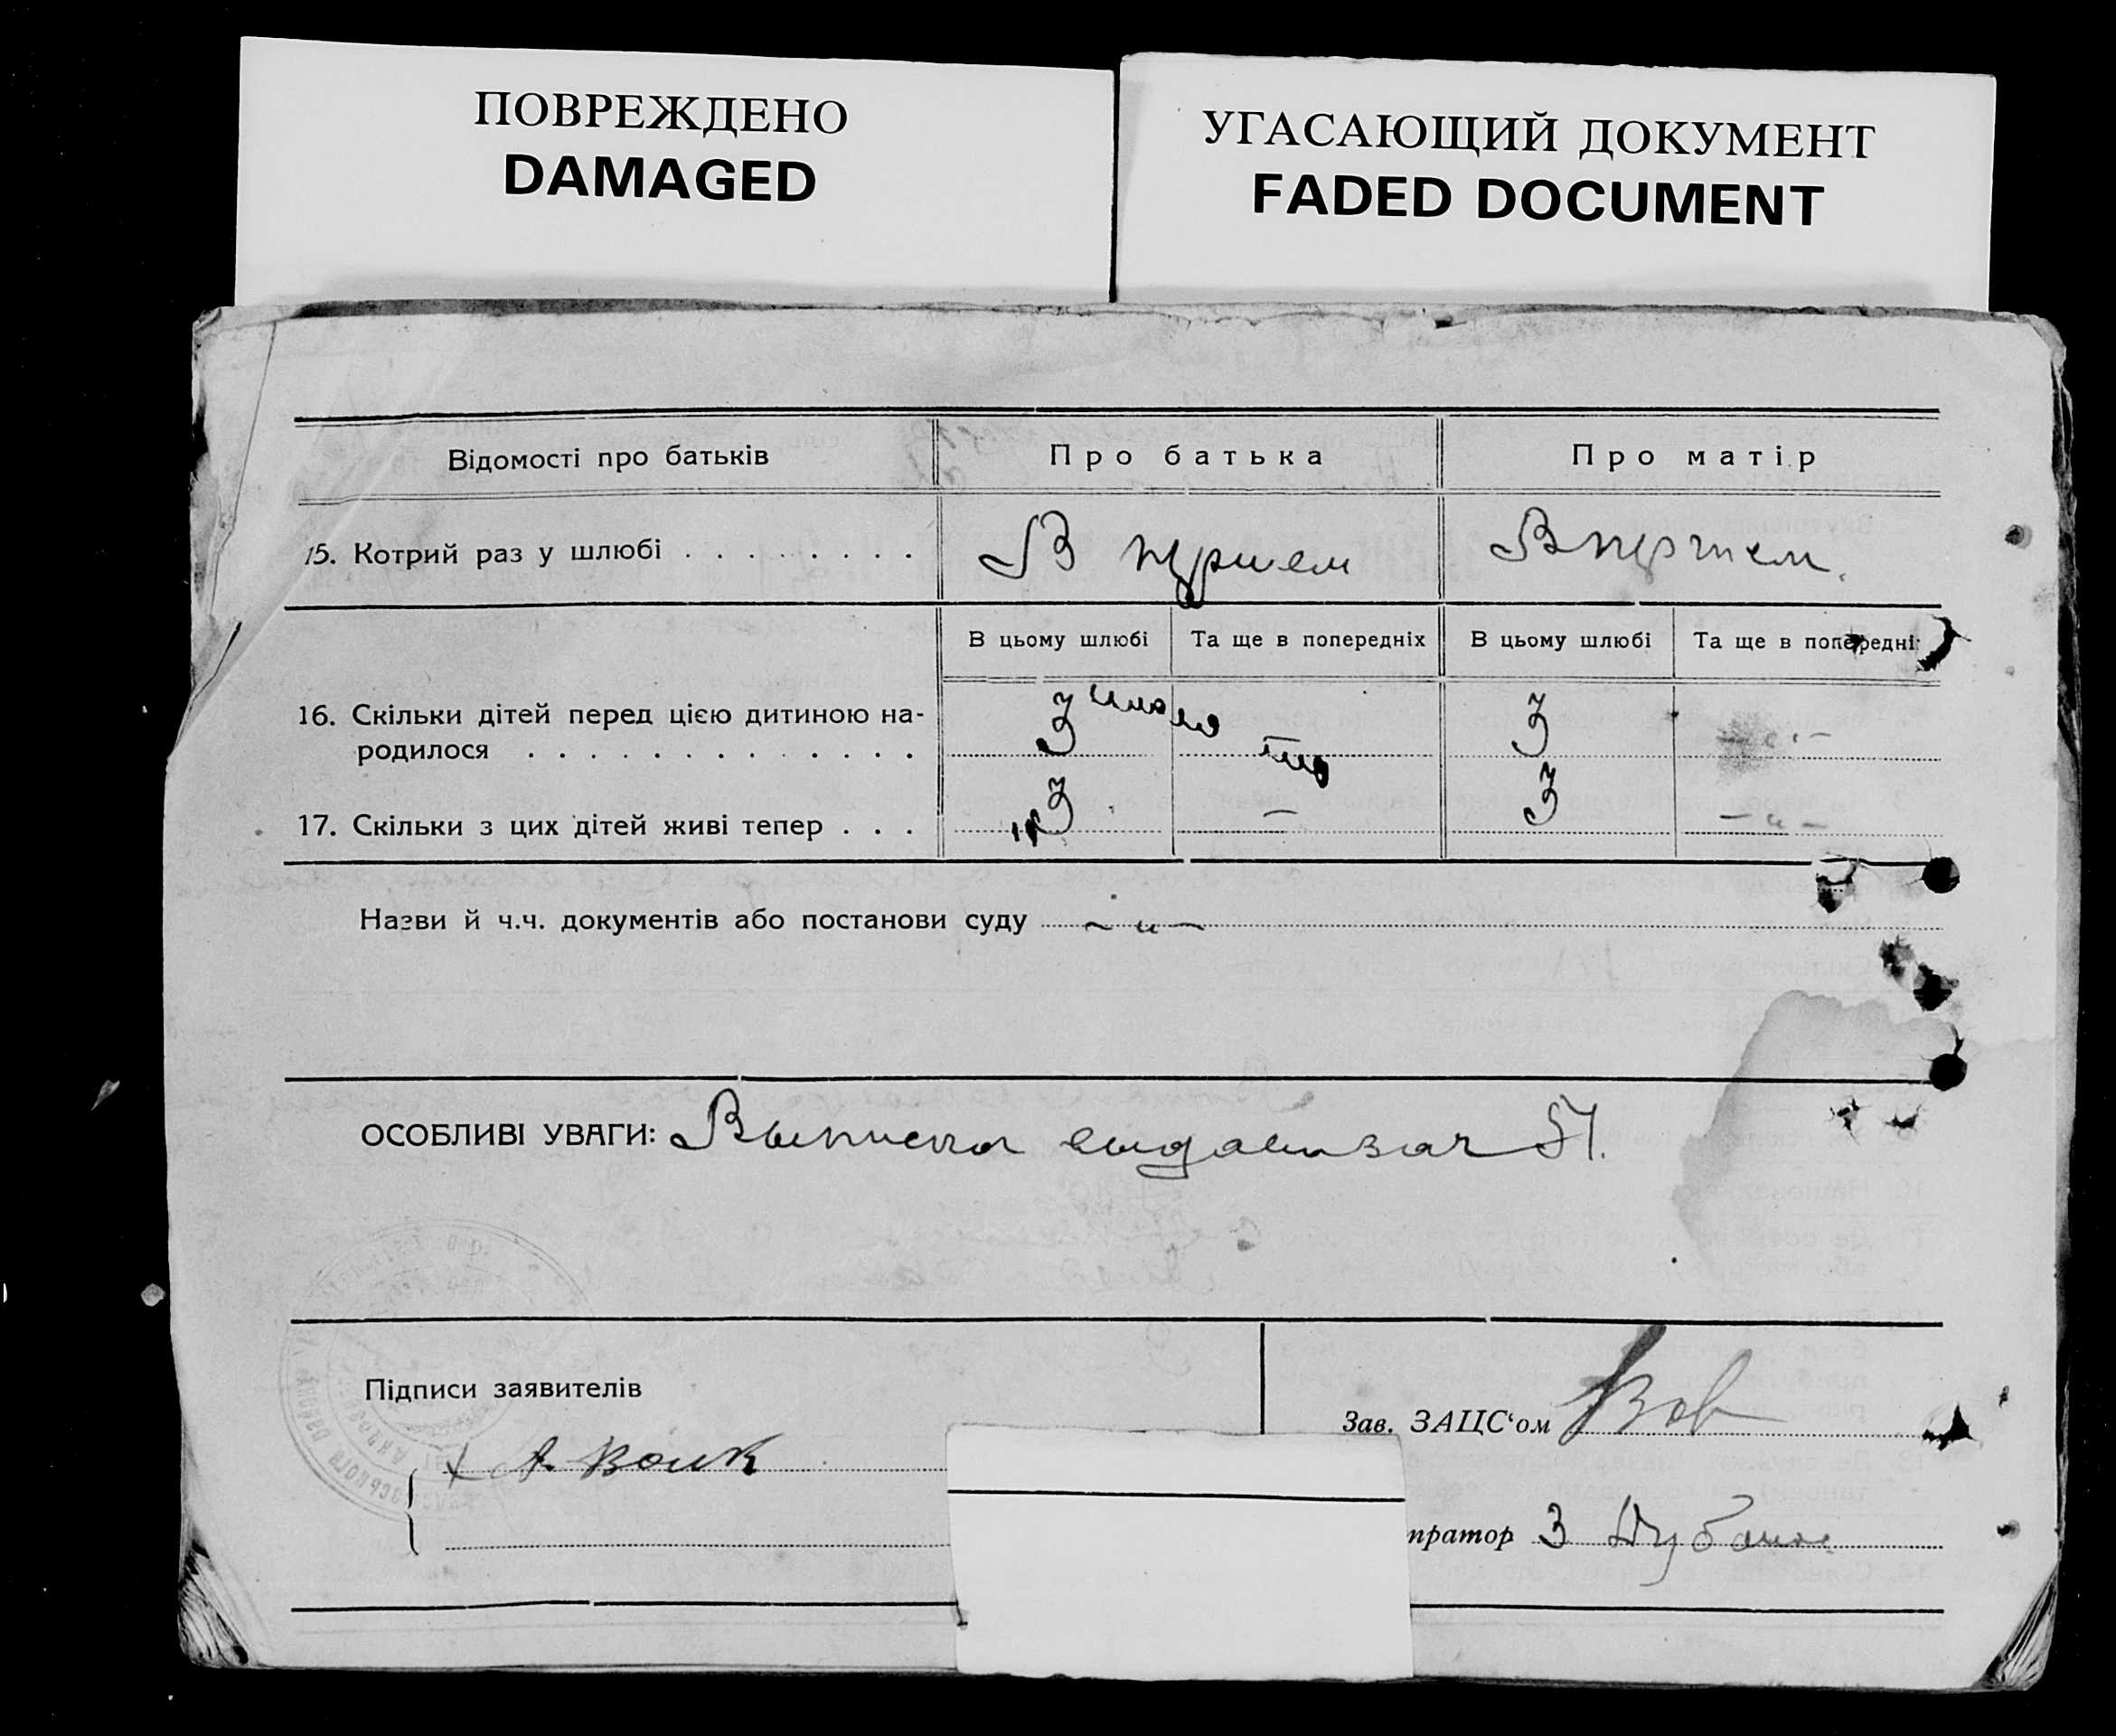 ПОВРЕЖДЕНО
DAMAGED
УГАСАЮЩИЙ ДОКУМЕНТ
FADED DOCUMENT
Відомості про батьків Про батька Про матір
15. Котрий раз у шлюбі В першем В першем.
В цьому шлюбі Та ще в попередніх В цьому шлюбі Та ще в попередні
16. Скільки дітей перед цією дитиною на-
родилося . . . . . . . . . . . . . 3 3 — „ —
17. Скільки з цих дітей живі тепер . . . 3 — 3 — „ —
Назви й ч.ч. документів або постанови суду — „ —
ОСОБЛИВІ УВАГИ: Выписка
Підписи заявителів
Зав. ЗАЦС‘ом
А. Волк
тратор З